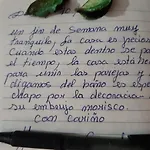 un fin de semana muy
tranquilo, la casa es preciosa
cuando estas dentro se para
el tiempo, la casa esta hecha
para unir las parejas y
digamos del baño es espec
chapo por la decoración
su embrujo morisco
con cariño